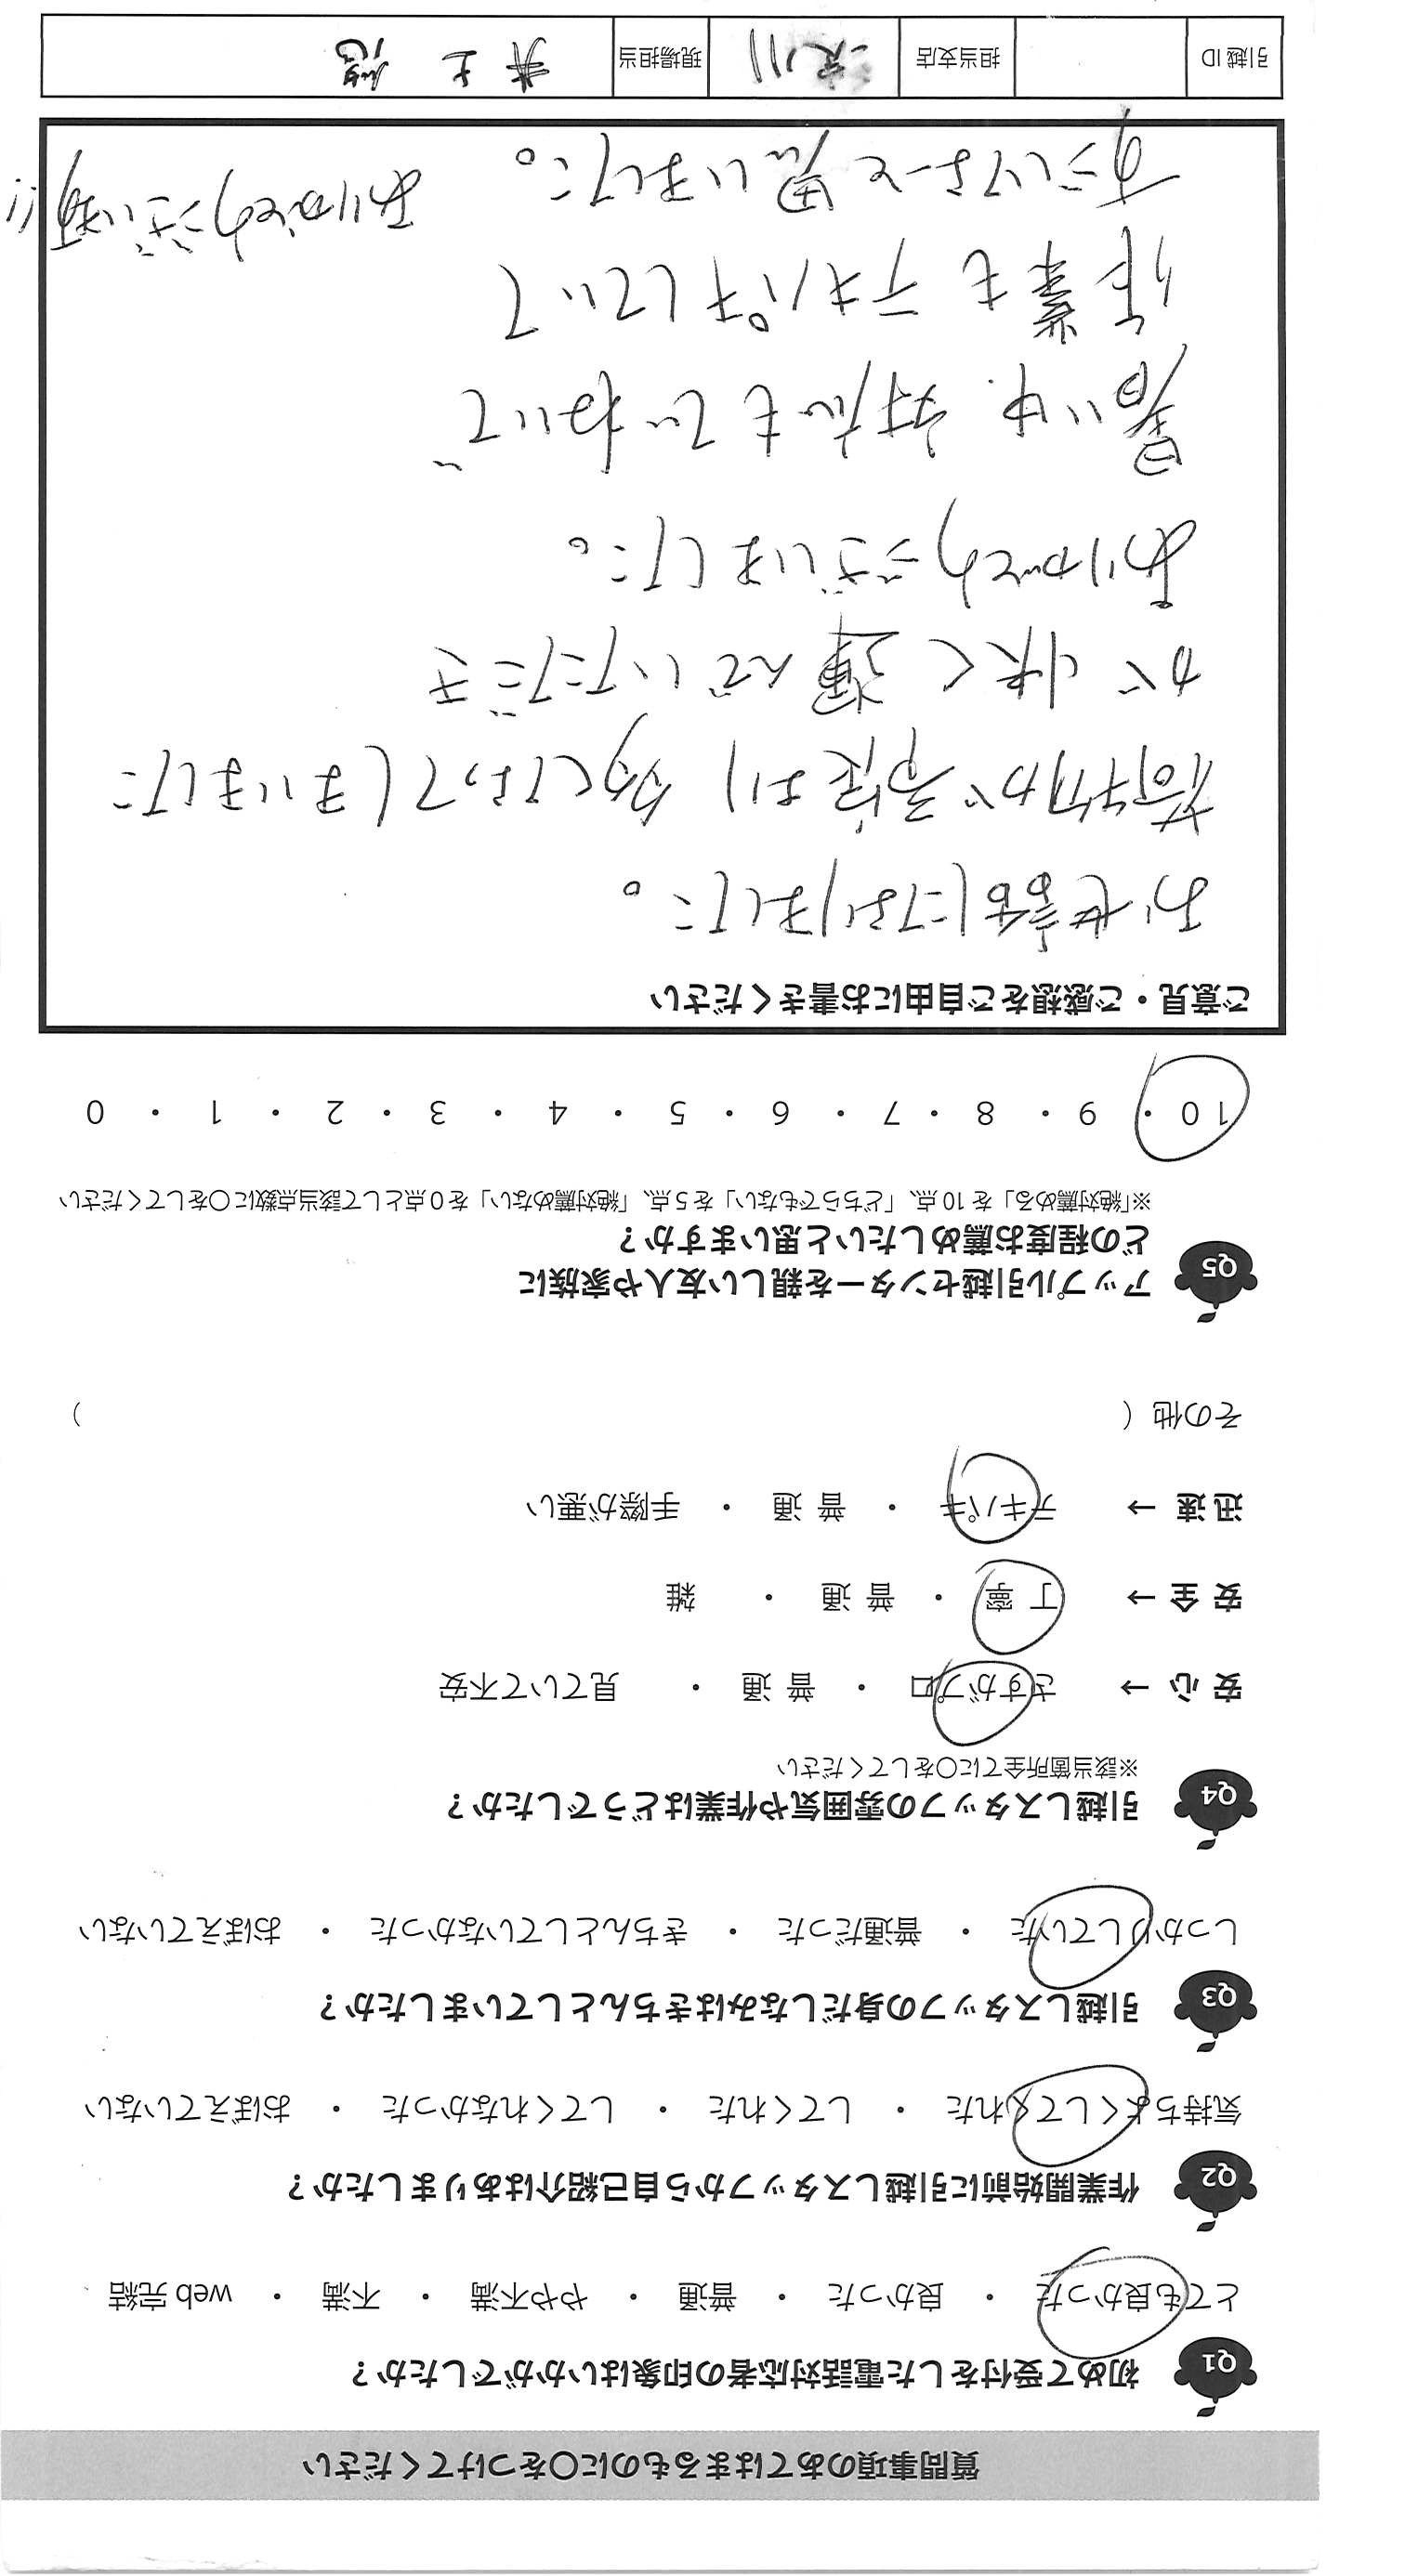 質問事項のあてはまるものに〇をつけてください
Q1 初めて受付をした電話対応者の印象はいかがでしたか?
とても良かった ・ 良かった ・ 普通 ・ やや不満 ・ 不満 ・ web 完結
Q2 作業開始前に引越しスタッフから自己紹介はありましたか?
気持ちよくしてくれた ・ してくれた ・ してくれなかった ・ おぼえていない
Q3 引越しスタッフの身だしなみはきちんとしていましたか?
しっかりしていた ・ 普通だった ・ きちんとしていなかった ・ おぼえていない
Q4 引越しスタッフの雰囲気や作業はどうでしたか?
※該当箇所全てに〇をしてください
安 心 → さすがプロ ・ 普 通 ・ 見ていて不安
安 全 → 丁 寧 ・ 普 通 ・ 雑
迅 速 → テキパキ ・ 普 通 ・ 手際が悪い
その他 ( )
Q5 アップル引越センターを親しい友人や家族に
どの程度お薦めしたいと思いますか?
※「絶対薦める」を 10 点、「どちらでもない」を 5 点、「絶対薦めない」を 0 点として該当点数に〇をしてください
10 ・ 9 ・ 8 ・ 7 ・ 6 ・ 5 ・ 4 ・ 3 ・ 2 ・ 1 ・ 0
ご意見・ご感想をご自由にお書きください
お世話になりました。
荷物が予定より多くなってしまいました
が 快く 運んでいただき
ありがとうございました。
暑い中、対応もていねいで
作業も テキパキしていて
すごいなーと思いました。
ありがとうございます
引越 ID 担当支店 現場担当 井 上